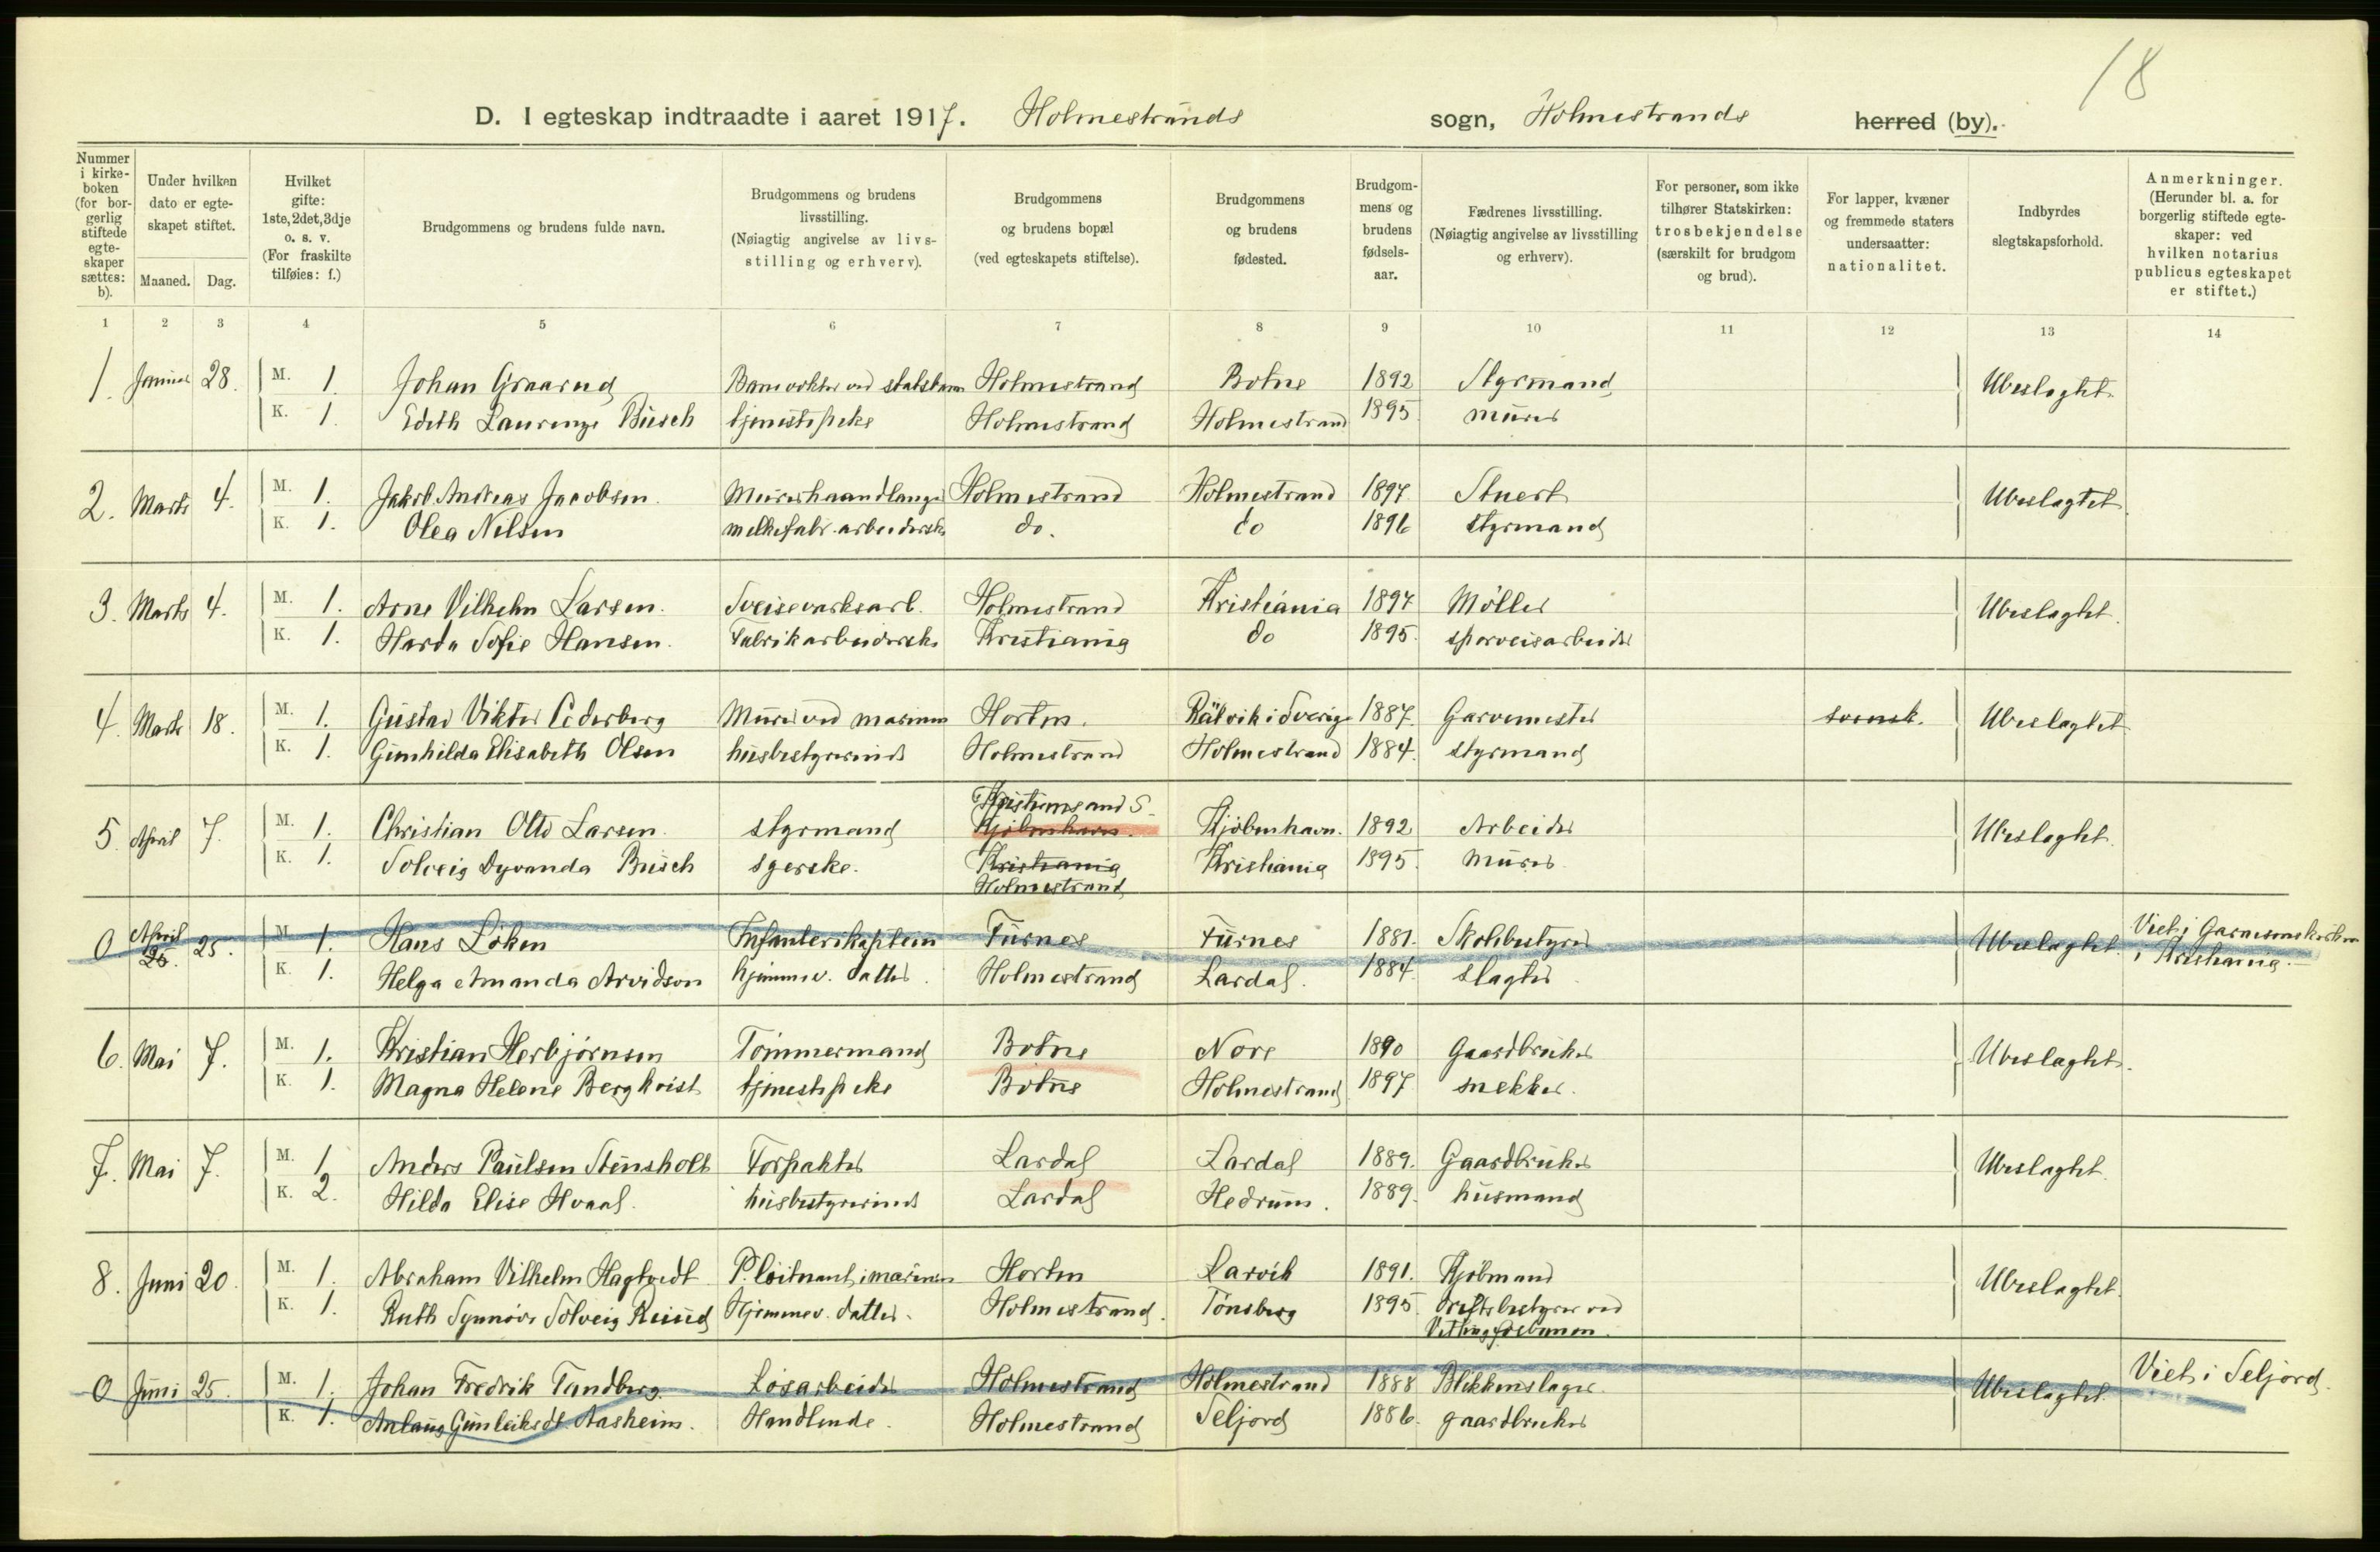 18
D. I egteskap indtraadte i aaret 1917. Holmestrands sogn, Holmestrands herred (by).
Nummer i kirkeboken (for borgerlig stiftede egteskaper sættes: b).
Under hvilken dato er egteskapet stiftet.
Maaned. Dag.
Hvilket gifte: 1ste, 2det, 3dje o. s. v. (For fraskilte tilføies: f.)
Brudgommens og brudens fulde navn.
Brudgommens og brudens livsstilling. (Nøiagtig angivelse av livsstilling og erhverv).
Brudgommens og brudens bopæl (ved egteskapets stiftelse).
Brudgommens og brudens fødested.
Brudgommens og brudens fødselsaar.
Fædrenes livsstilling. (Nøiagtig angivelse av livsstilling og erhverv).
For personer, som ikke tilhører Statskirken: trosbekjendelse (særskilt for brudgom og brud).
For lapper, kvæner og fremmede staters undersaatter: nationalitet.
Indbyrdes slegtskapsforhold.
Anmerkninger. (Herunder bl. a. for borgerlig stiftede egteskaper: ved hvilken notarius publicus egteskapet er stiftet.)
1 2 3 4 5 6 7 8 9 10 11 12 13 14
1. Januar 28. M. 1. Johan Graarud Banevokter ved statsbanen Holmestrand Botne 1892 Styrmand Ubeslægtet.
K. 1. Edith Laurenze Busch tjenestepike Holmestrand Holmestrand 1895 murer
2. Marts 4. M. 1. Jakob Andreas Jacobsen. Murerhaandlanger Holmestrand Holmestrand 1897 Stuert Ubeslægtet.
K. 1. Olea Nilsen melkefabr. arbeiderske do. do 1896 styrmand
3. Marts 4. M. 1. Arne Vilhelm Larsen. Sveiseverksarb. Holmestrand Kristiania 1897 Møller Ubeslægtet.
K. 1. Harda Sofie Hansen. Fabrikarbeiderske Kristiania do 1895. sporveisarbeider
4. Marts 18. M. 1. Gustav Viktor Cederberg Murer ved marinen Horten. Rälvik i Sverige 1887. Garvemester svensk. Ubeslægtet
K. 1. Gunhilda Elisabeth Olsen husbestyrerinde Holmestrand Holmestrand 1884. styrmand
Kristiansand S.
5. April 7. M. 1. Christian Otto Larsen. styrmand Kjøbenhavn. Kjøbenhavn. 1892 Arbeider Ubeslægtet.
K. 1. Solveig Dyvanda Busch syerske. Kristiania Kristiania 1895. murer
Holmestrand
0 April 25. 25. M. 1. Hans Löken Infanterikaptein Furnes Furnes 1881. Skolebestyrer Ubeslægtet. Viet i Garnisonskirken
K. 1. Helga Amanda Arvidson hjemmev. datter. Holmestrand Lardal. 1884. slagter i Kristiania.
6. Mai 7. M. 1. Kristian Herbjörnsen Tömmermand Botne Nore 1890 Gaardbruker Ubeslægtet.
K. 1. Magna Helene Bergkvist tjenestepike Botne Holmestrand 1897 snekker.
7. Mai 7. M. 1 Anders Paulsen Stensholt Forpakter Lardal Lardal 1889. Gaardbruker Ubeslægtet.
K. 2. Hilda Elise Hvaal. husbestyrerinde Lardal Hedrum. 1889. husmand
8. Juni 20. M. 1. Abraham Vilhelm Hagtvedt P. löitnant i marinen Horten Larvik 1891. Kjøbmand Ubeslægtet.
K. 1. Ruth Synnöve Solveig Reiud Hjemmev. datter. Holmestrand. Tönsberg 1895 Driftsbestyrer ved
Vittingfosbanen.
0 Juni 25. M. 1. Johan Fredrik Tandberg. Lösarbeider Holmestrand Holmestrand 1888 Blikkenslager. Ubeslægtet. Viet i Seljord.
K. 1. Anlaug Gunleiksdt. Aasheim. Handlende. Holmestrand Seljord 1886. gaardbruker